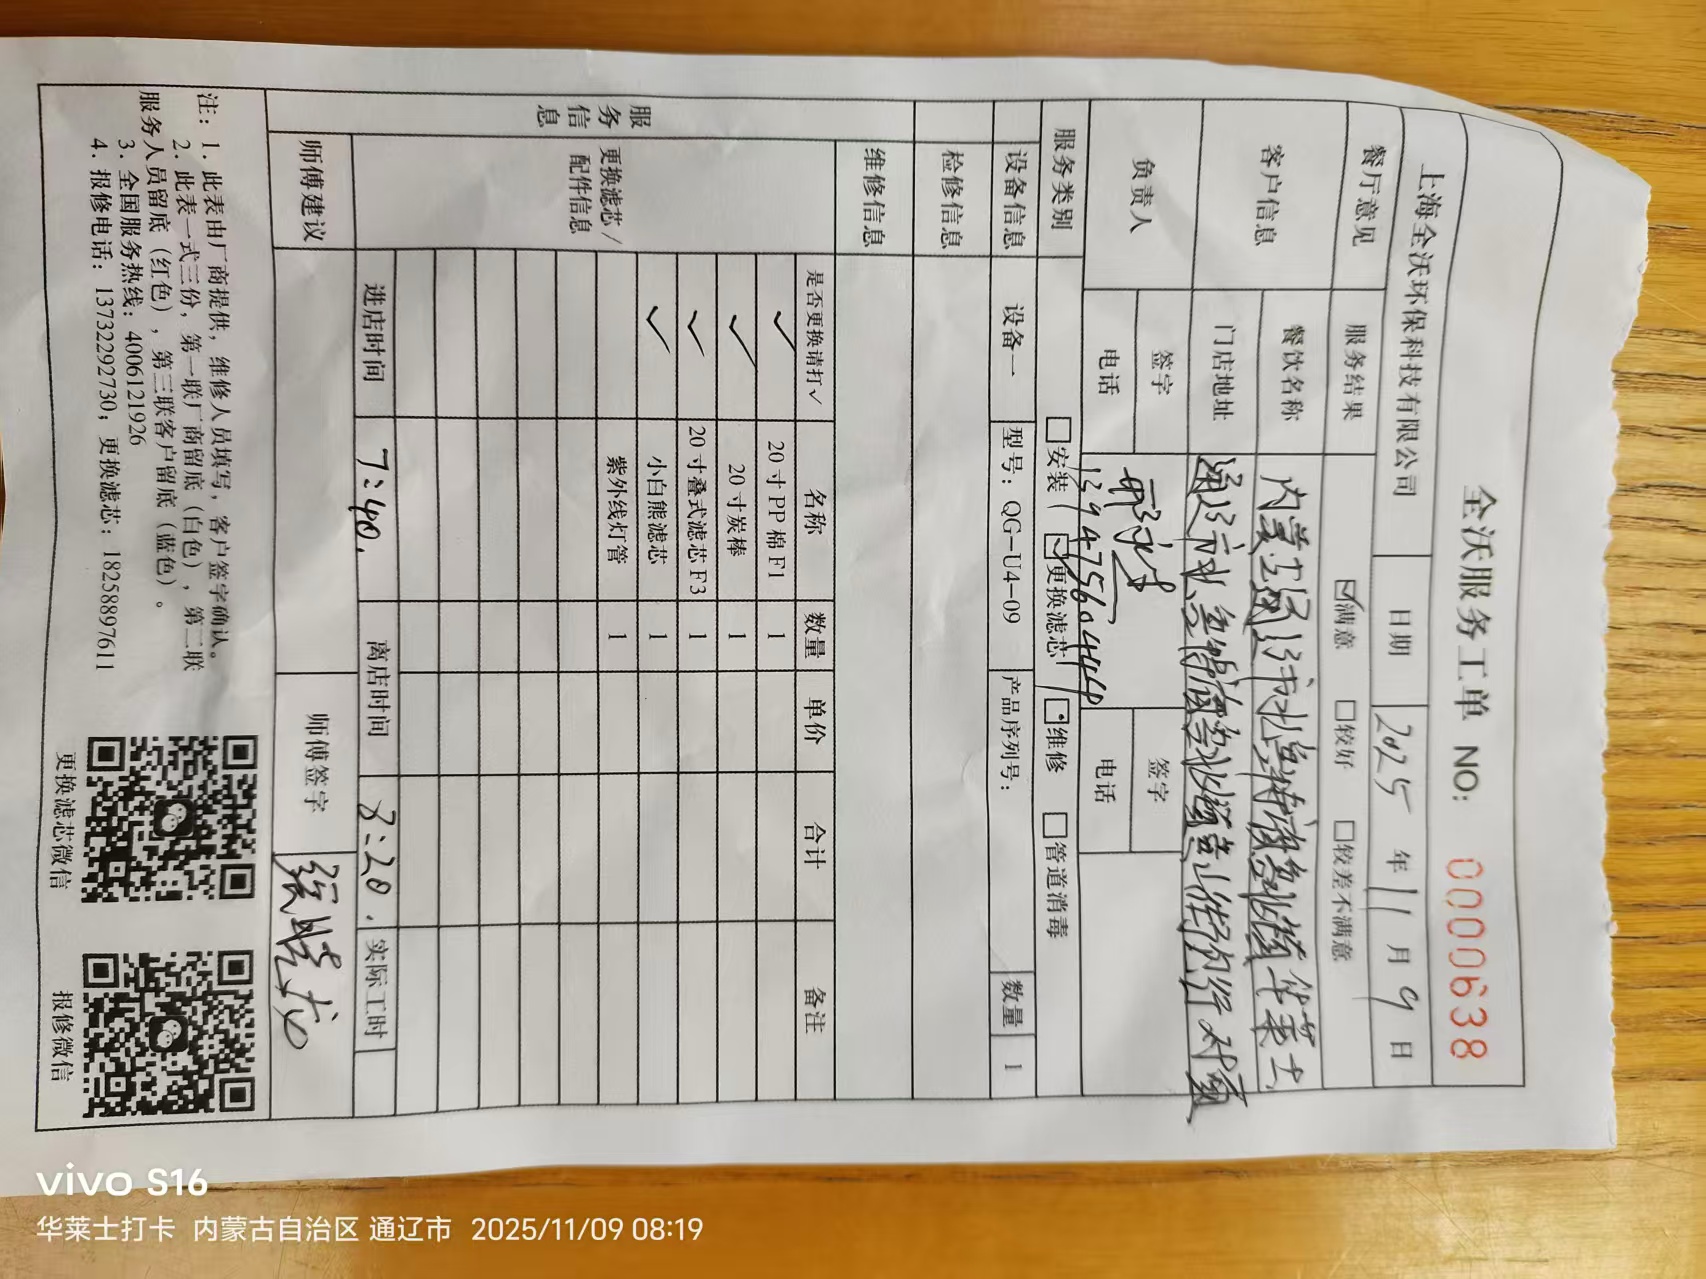 全沃服务工单 NO: 0000638
上海全沃环保科技有限公司 日期 2025年11月9日
餐厅意见 服务结果 ☑满意 □较好 □较差不满意
客户信息 餐饮名称 内蒙古 华莱士
门店地址
负责人 签字 签字
电话 13947560444 电话
服务类别 □安装 ☑更换滤芯 □维修 □管道消毒
设备信息 设备一 型号：QG-U4-09 产品序列号： 数量 1
检修信息
维修信息
服务信息
更换滤芯/配件信息
是否更换请打√ 名称 数量 单价 合计 备注
✓ 20寸PP棉F1 1
✓ 20寸炭棒 1
✓ 20寸叠式滤芯F3 1
✓ 小白熊滤芯 1
紫外线灯管 1
进店时间 7:40. 离店时间 8:20. 实际工时
师傅建议 师傅签字
注：1. 此表由厂商提供，维修人员填写，客户签字确认。
2. 此表一式三份，第一联厂商留底（白色），第二联
服务人员留底（红色），第三联客户留底（蓝色）。
3. 全国服务热线：4006121926
4. 报修电话：13732292730；更换滤芯：18258897611
更换滤芯微信 报修微信
vivo S16
华莱士打卡 内蒙古自治区 通辽市 2025/11/09 08:19